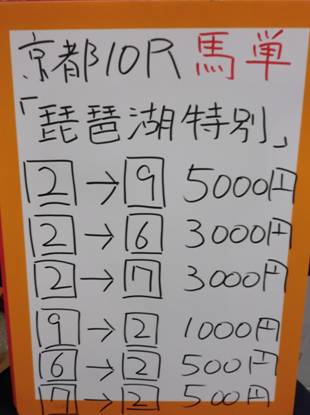 京都10R 馬単
「琵琶湖特別」
2→9 5000円
2→6 3000円
2→7 3000円
9→2 1000円
6→2 500円
7→2 500円